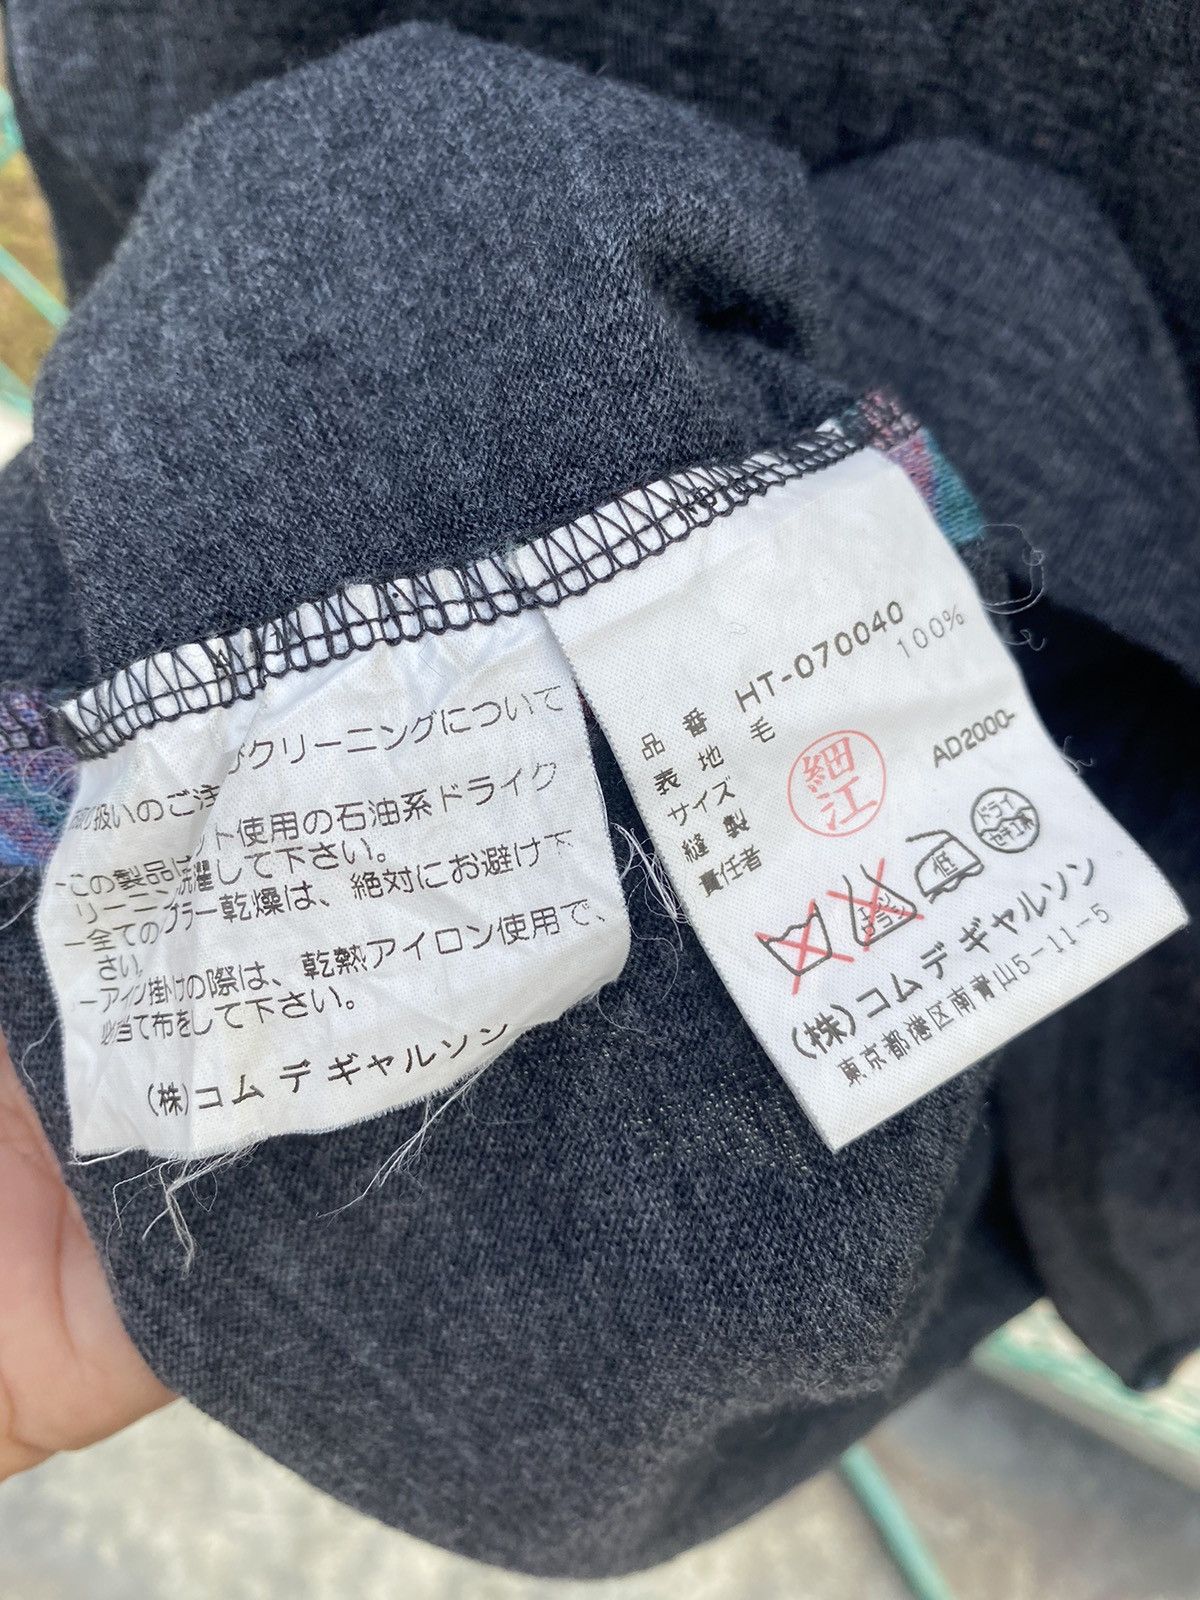 びクリーニングについて
扱いのご注
ーこの製品は
ット使用の石油系ドライク
リーニン
洗濯して下さい。
ー全ての
ブラー乾燥は、絶対にお避け下
さい。
ーアイン掛けの際は、乾熱アイロン使用で、
必当て布をして下さい。
(株)コム デ ギャルソン
品番 HT-070040
表地 毛 100%
サイズ
縫製
責任者
細江
AD2000-
エンソ
サラシ
低
ドライ
セキユ系
(株)コム デ ギャルソン
東京都港区南青山5-11-5